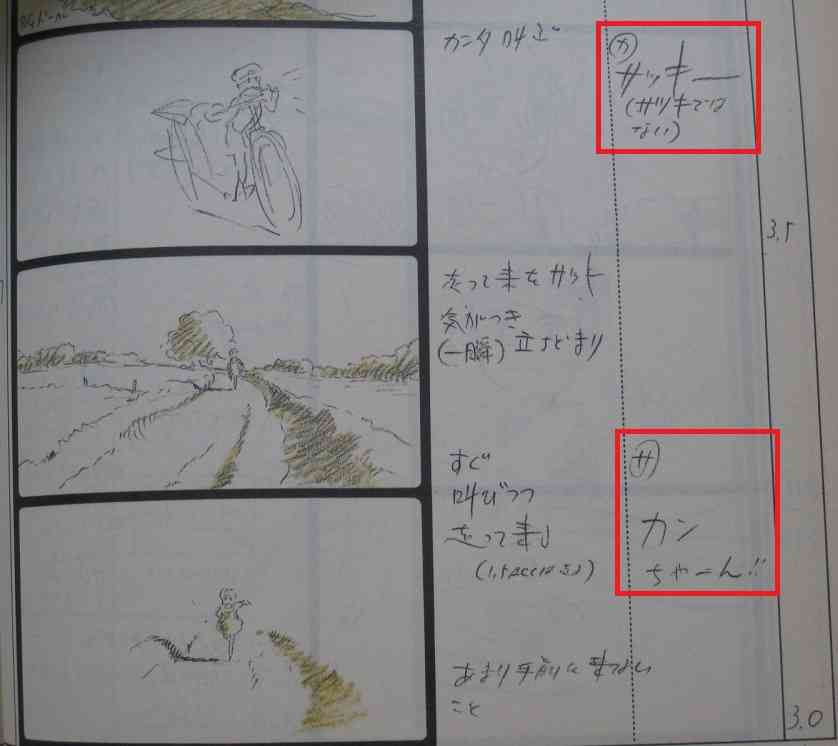 カンタ叫ぶ
カ
サッキー
(サツキでは
ない)
3.5
走って来るサツキ
気がつき
(一瞬) 立ちどまり
すぐ
叫びつつ
走って来る
サ
カン
ちゃーん!!
あまり手前に来ない
こと
3.0